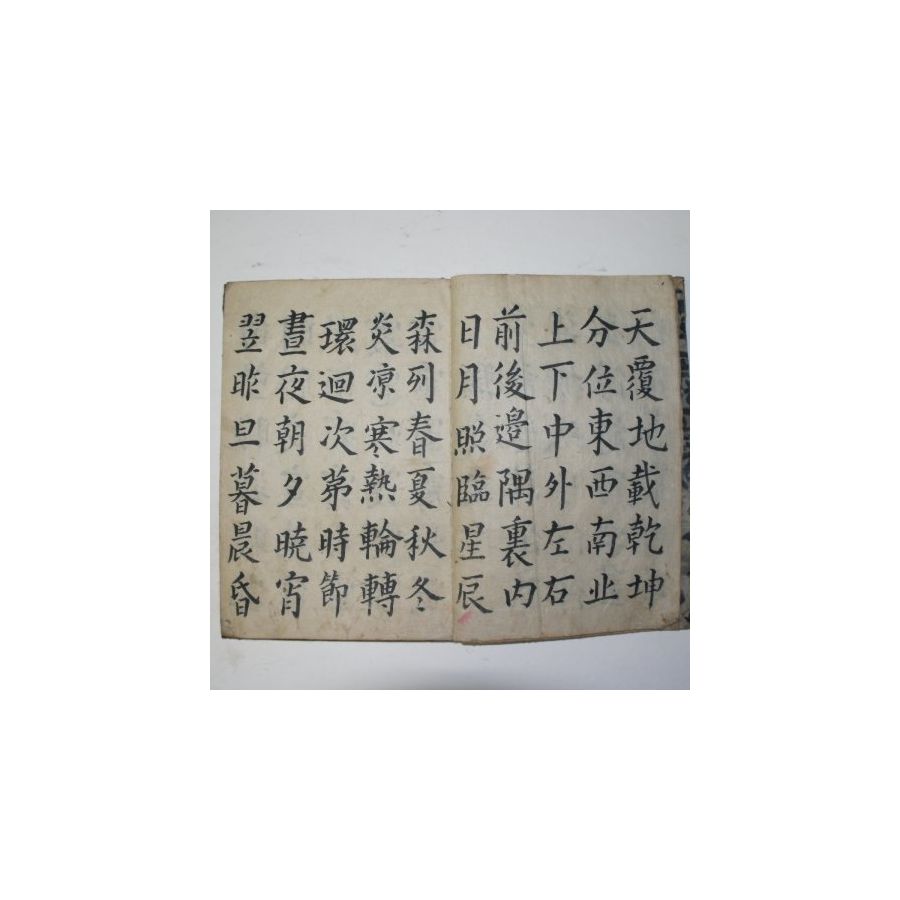 天覆地載乾坤
分位東西南北
上下中外左右
前後邉隅裏内
日月照臨星辰
森列春夏秋冬
炎凉寒熱輪轉
環迴次苐時節
晝夜朝夕曉宵
翌昨旦暮晨昏